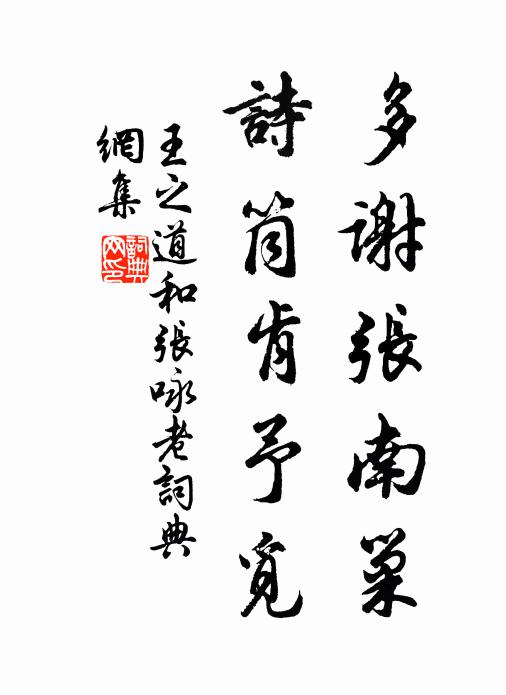 多謝張南巢
詩筒肯予覓
王之道和張咏老詞典
網集
詞典網印